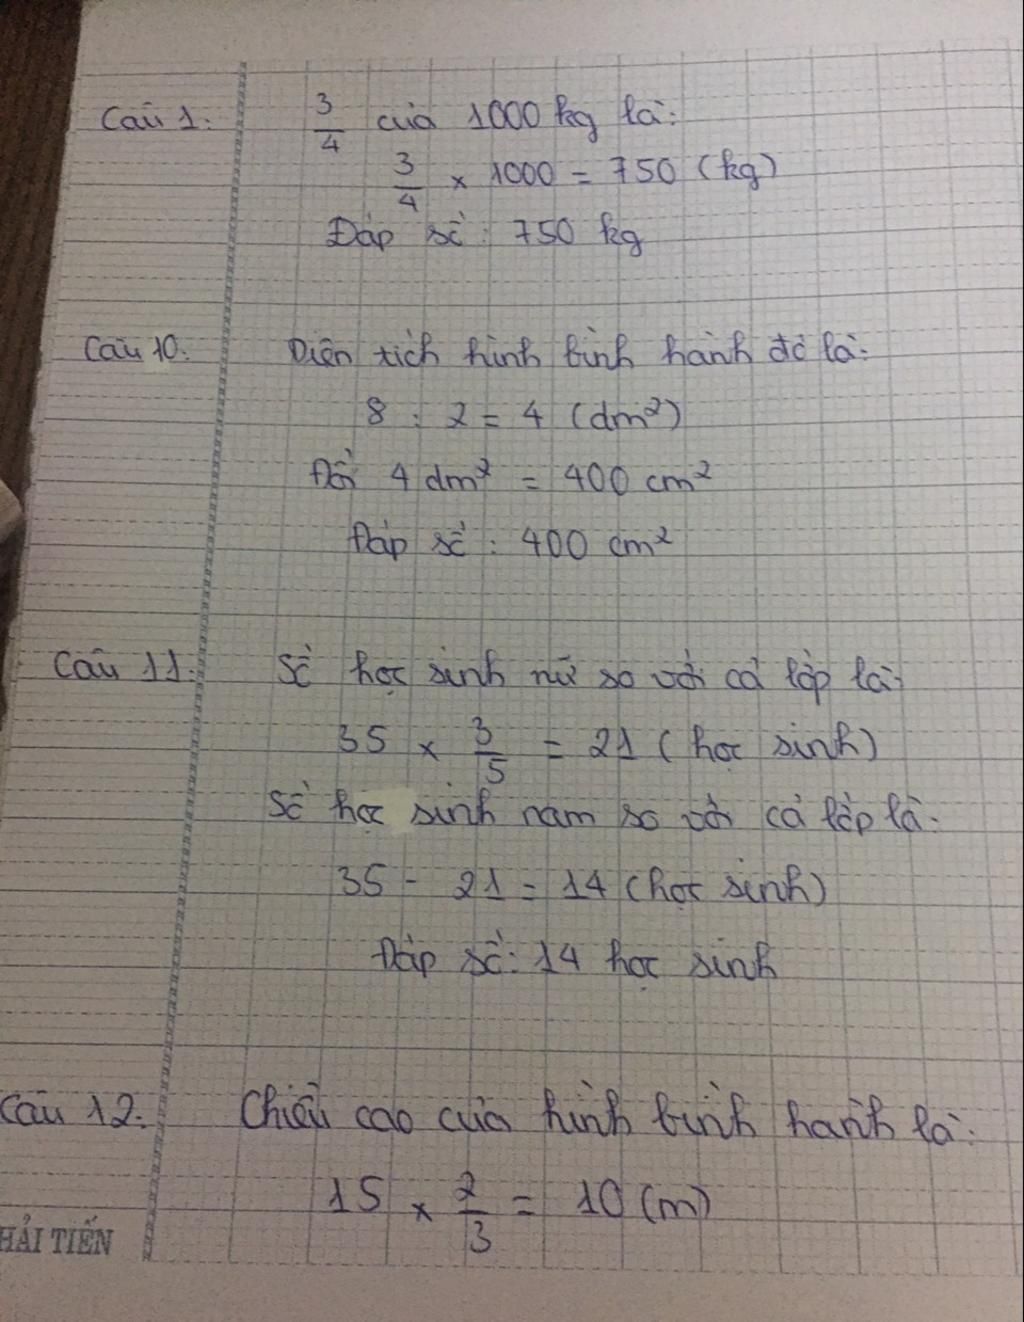 Câu 1: 3/4 của 1000 kg là:
3/4 × 1000 = 750 (kg)
Đáp số: 750 kg
Câu 10: Diện tích hình bình hành đó là:
8 : 2 = 4 (dm²)
Đổi 4 dm² = 400 cm²
Đáp số: 400 cm²
Câu 11: Số học sinh nữ so với cả lớp là:
35 × 3/5 = 21 (học sinh)
Số học sinh nam so với cả lớp là:
35 - 21 = 14 (học sinh)
Đáp số: 14 học sinh
Câu 12: Chiều cao của hình bình hành là:
15 × 2/3 = 10 (m)
HẢI TIẾN